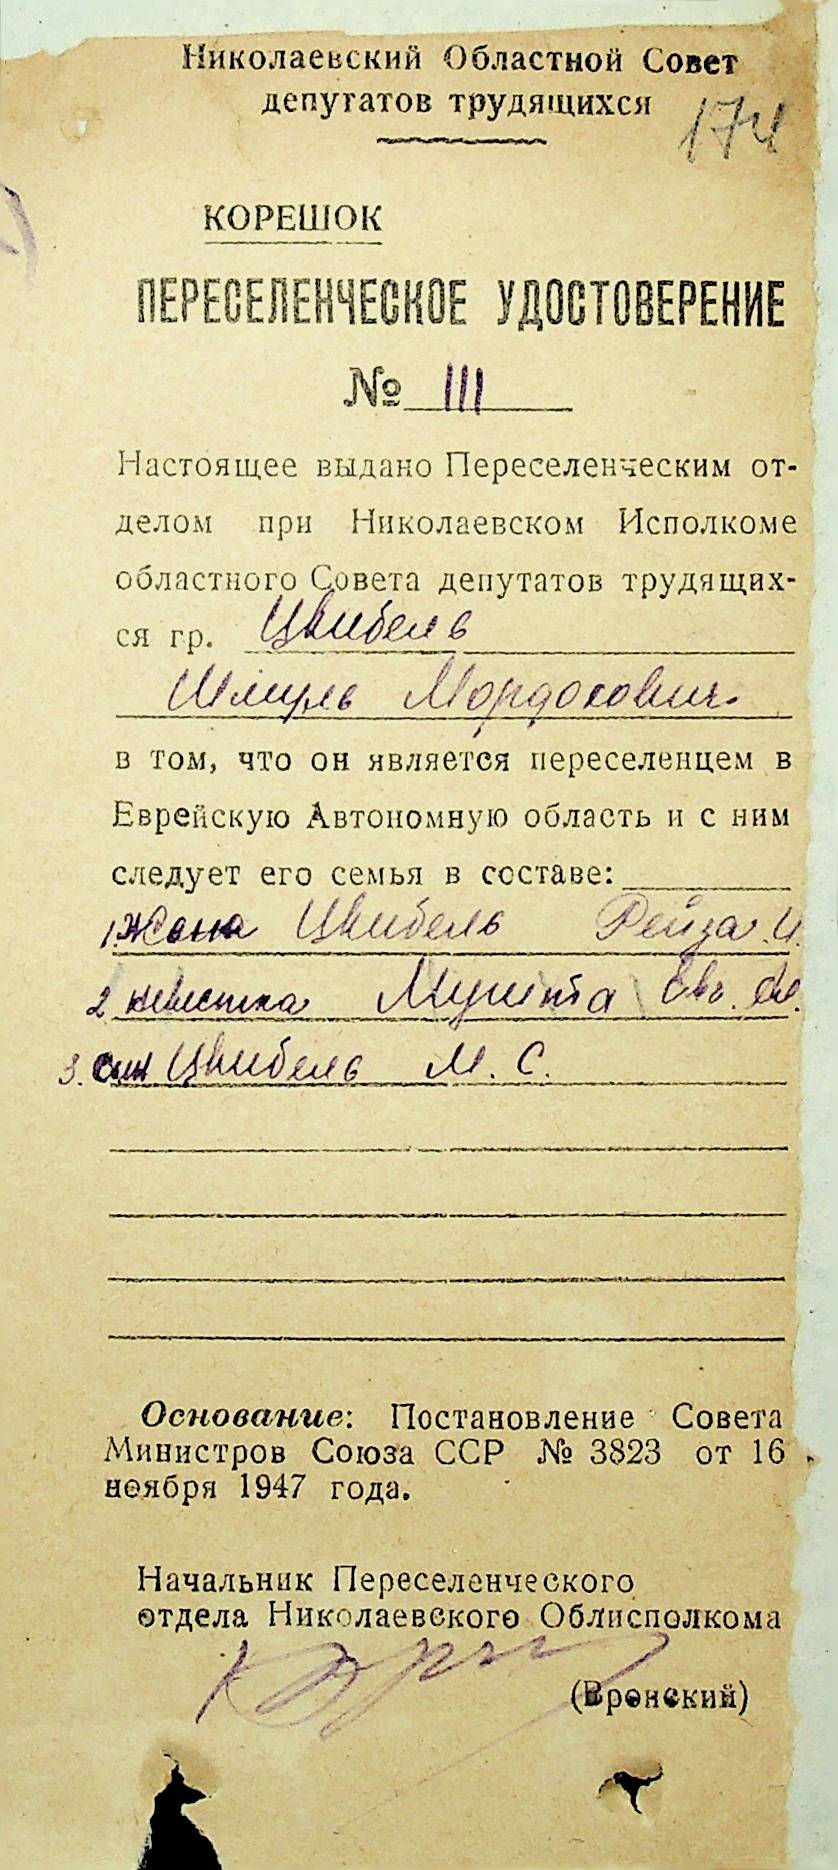 Николаевский Областной Совет
депутатов трудящихся
174
КОРЕШОК
ПЕРЕСЕЛЕНЧЕСКОЕ УДОСТОВЕРЕНИЕ
№ 111
Настоящее выдано Переселенческим от-
делом при Николаевском Исполкоме
областного Совета депутатов трудящих-
ся гр. Цвибель
Шмуль Мордохович
в том, что он является переселенцем в
Еврейскую Автономную область и с ним
следует его семья в составе:
1. Жена Цвибель Рейза И.
2 невестка Евг.
3. сын Цвибель М. С.
Основание: Постановление Совета
Министров Союза ССР № 3823 от 16
ноября 1947 года.
Начальник Переселенческого
отдела Николаевского Облисполкома
(Вронский)